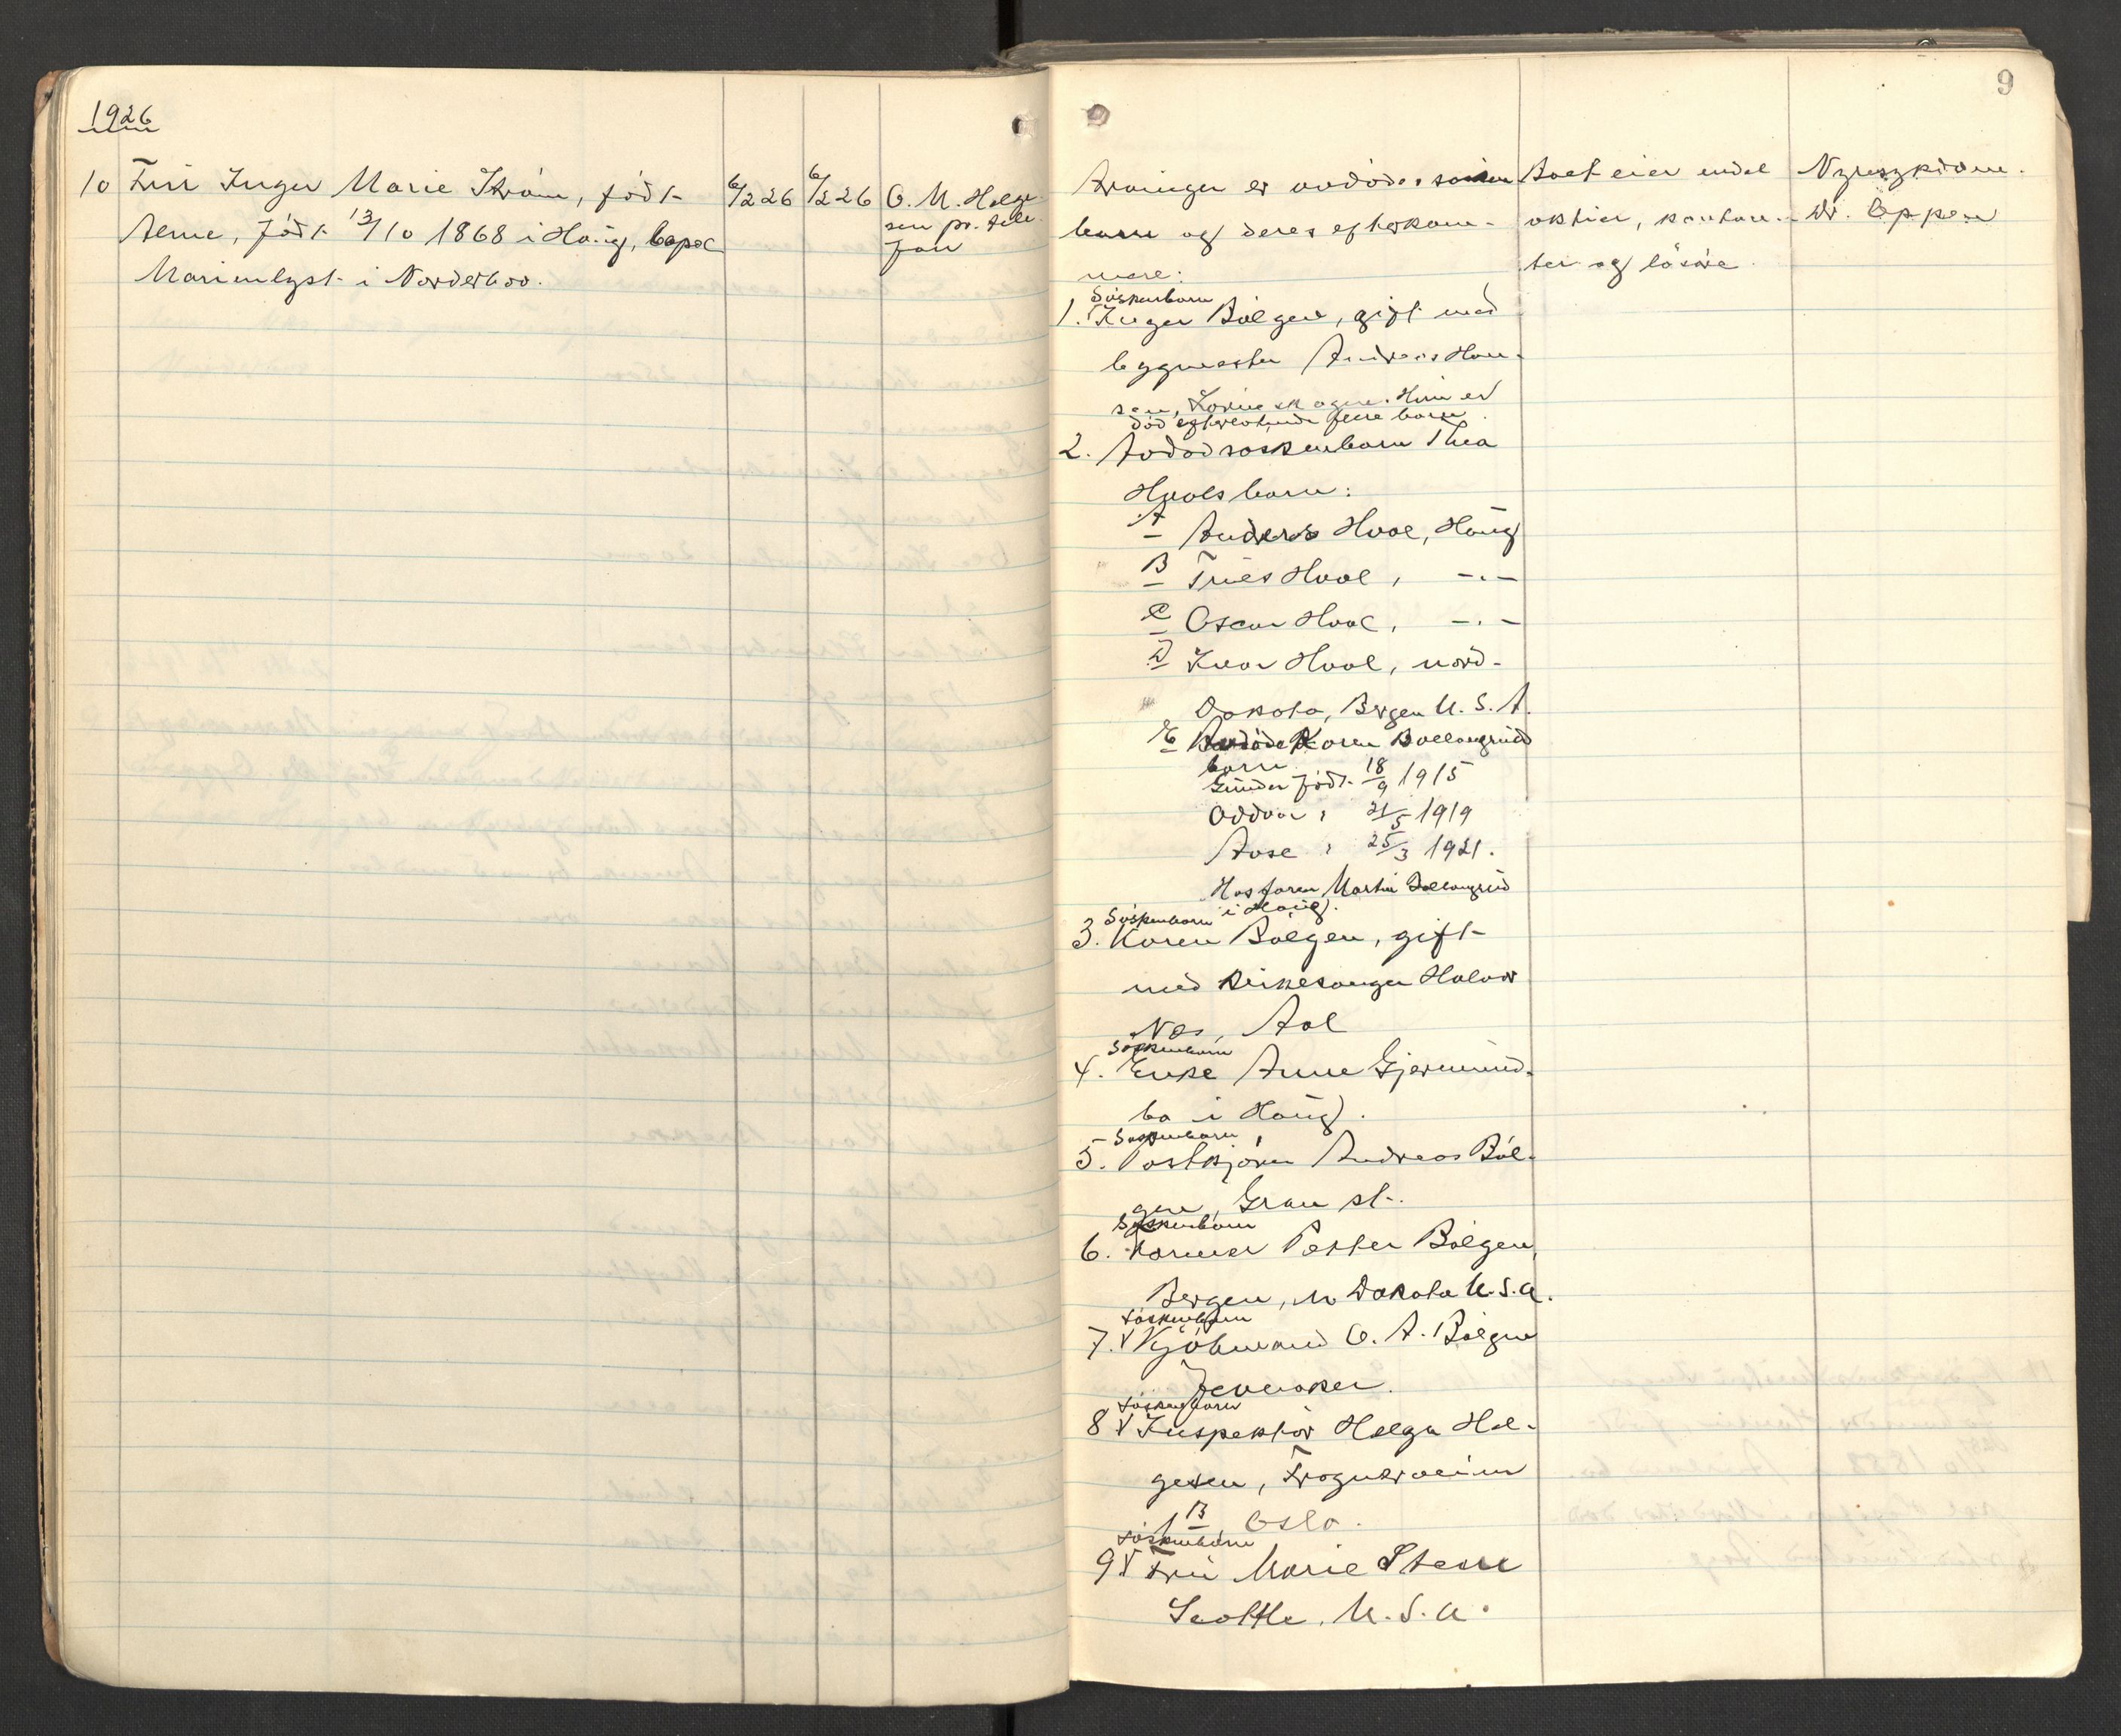 1926
10 Fru Inger Marie Strøm, født
Aerne, født 13/10 1868 i Haug, bopæl
Marienlyst i Norderhov.
6/2 26
6/2 26
O. M. Helge-
sen pr. tele-
fon
9
Arvinger er avdødes søsken-
barn og deres efterkom-
mere:
Søskenbarn
1. Inger Bølgen, gift med
byggmester Andreas Han-
sen, Hun er
død efterlatende flere barn.
2. Avdød søskenbarn Thea
Hvals barn:
A Anders Hval, Haug
B Truls Hval, -"-
C Oscar Hval, -"-
D Ivar Hval, nord-
Dakota, Bergen U. S. A.
E Avdøde Karen Bollangrud
barn
Gunder født 18/9 1915
Oddvar : 21/5 1919
Aase : 25/3 1921.
Hos faren Martin Bollangrud
i Haug.
Søskenbarn
3. Karen Bølgen, gift
med kirkesanger Halvor
Nes, Aal
Søskenbarn
4. Enke Anne Gjermund-
bo i Haug.
Søskenbarn
5. Postkjører Andreas Bøl-
gen, Gran st.
Søskenbarn
6. Farmer Petter Bølgen,
Bergen, N Dakota U.S.A.
Søskenbarn
7. Kjøbmand O. A. Bølgen
Jevnaker.
Søskenbarn
8 Inspektør Helge Hel-
gesen, Frognerveien
1 B Oslo.
Søskenbarn
9 Fru Marie Steen
Seattle, U.S.A.
Boet eier endel
aktier, kontan-
ter og løsøre.
Nyresykdom.
Dr. Oppen